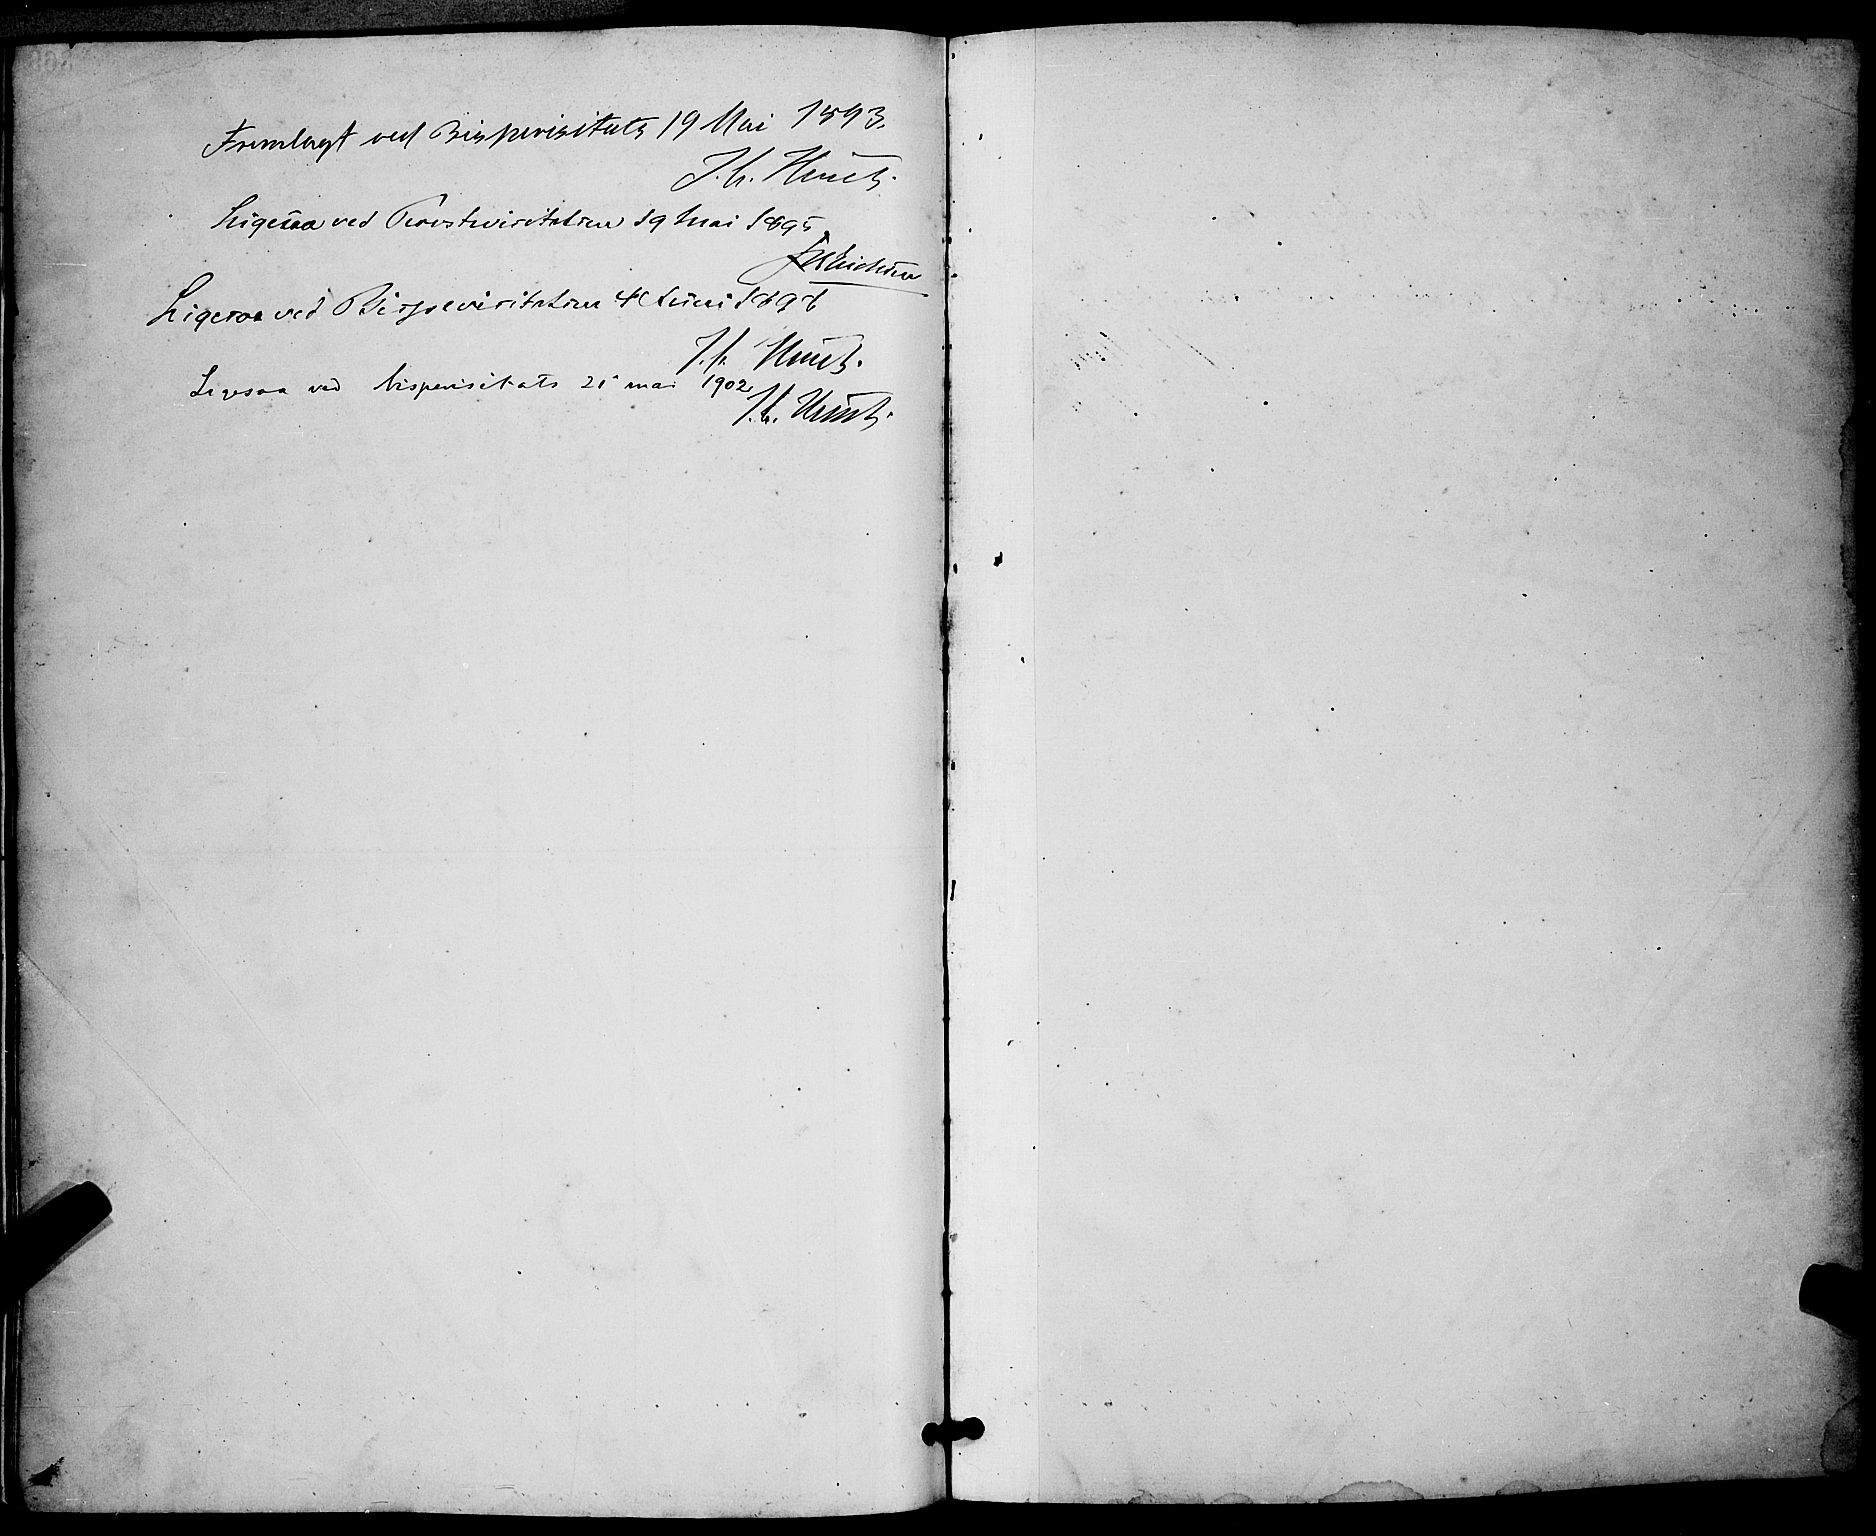 Fremlagt ved Bispevisitats 19 Mai 1893.
J. C. Heuch.
Ligesaa ved Provstevisitation 19 Mai 1895
Ligesaa ved Bispevisitation 4 Juni 1898
J. C. Heuch.
Ligesaa ved bispevisitats mai 1902
J. C. Heuch.